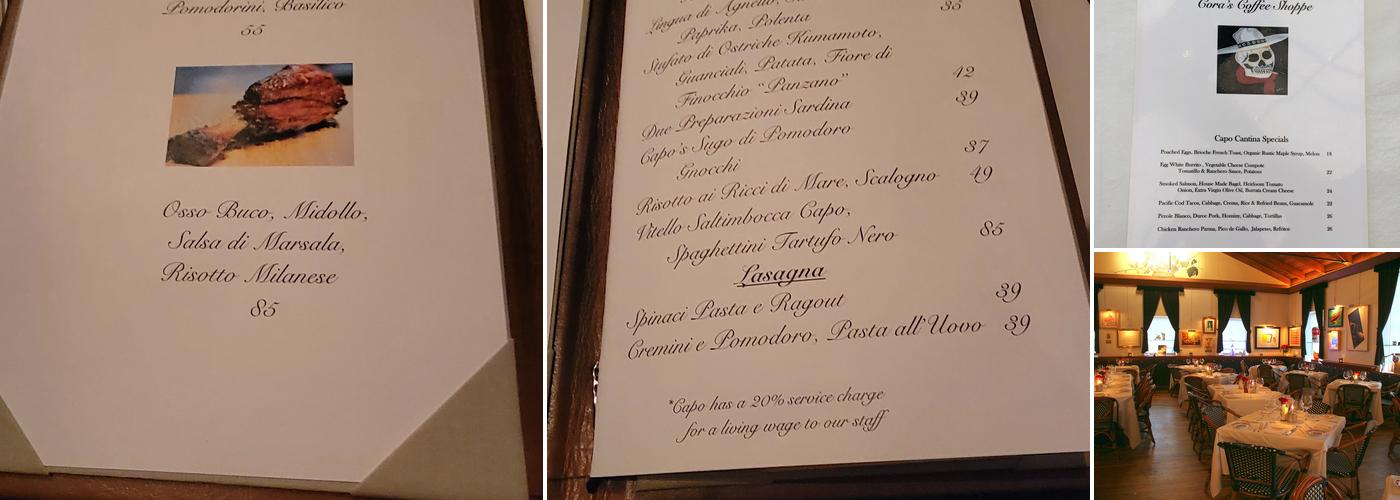 Pomodorini, Basilico
55
Osso Buco, Midollo,
Salsa di Marsala,
Risotto Milanese
85
Lingua di Agnello,
Paprika, Polenta 35
Sufato di Ostriche Kumamoto,
Guanciali, Patata, Fiore di
Finocchio "Panzano" 42
Due Preparazioni Sardina 39
Capo's Sugo di Pomodoro
Gnocchi 37
Risotto ai Ricci di Mare, Scalogno 49
Vitello Saltimbocca Capo,
Spaghettini Tartufo Nero 85
Lasagna
Spinaci Pasta e Ragout 39
Cremini e Pomodoro, Pasta all'Uovo 39
*Capo has a 20% service charge
for a living wage to our staff
Cora's Coffee Shoppe
Capo Cantina Specials
Poached Eggs, Brioche French Toast, Organic Rustic Maple Syrup, Melon 18
Egg White Burrito, Vegetable Cheese Compote
Tomatillo & Ranchero Sauce, Potatoes 22
Smoked Salmon, House Made Bagel, Heirloom Tomato
Onion, Extra Virgin Olive Oil, Burrata Cream Cheese 24
Pacific Cod Tacos, Cabbage, Crema, Rice & Refried Beans, Guacamole 22
Pozole Blanco, Duroc Pork, Hominy, Cabbage, Tortillas 26
Chicken Ranchero Parma, Pico de Gallo, Jalapeso, Refritos 26